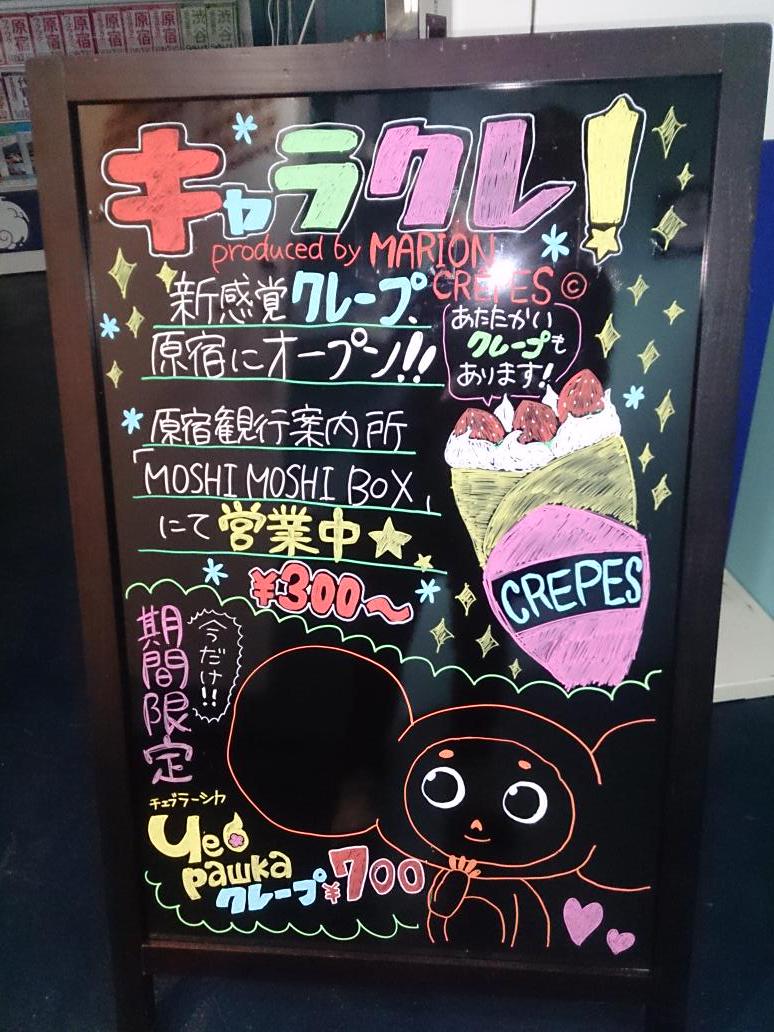 原宿
原宿
原宿
原宿
渋谷
渋谷
キャラクレ!
produced by MARION
CRÊPES ©
新感覚クレープ、
原宿にオープン!!
あたたかい
クレープも
あります!
原宿観行案内所
「MOSHI MOSHI BOX」
にて営業中★
¥300〜
CREPES
今だけ!!
期間限定
チェブラーシカ
Че
рашка
クレープ ¥700